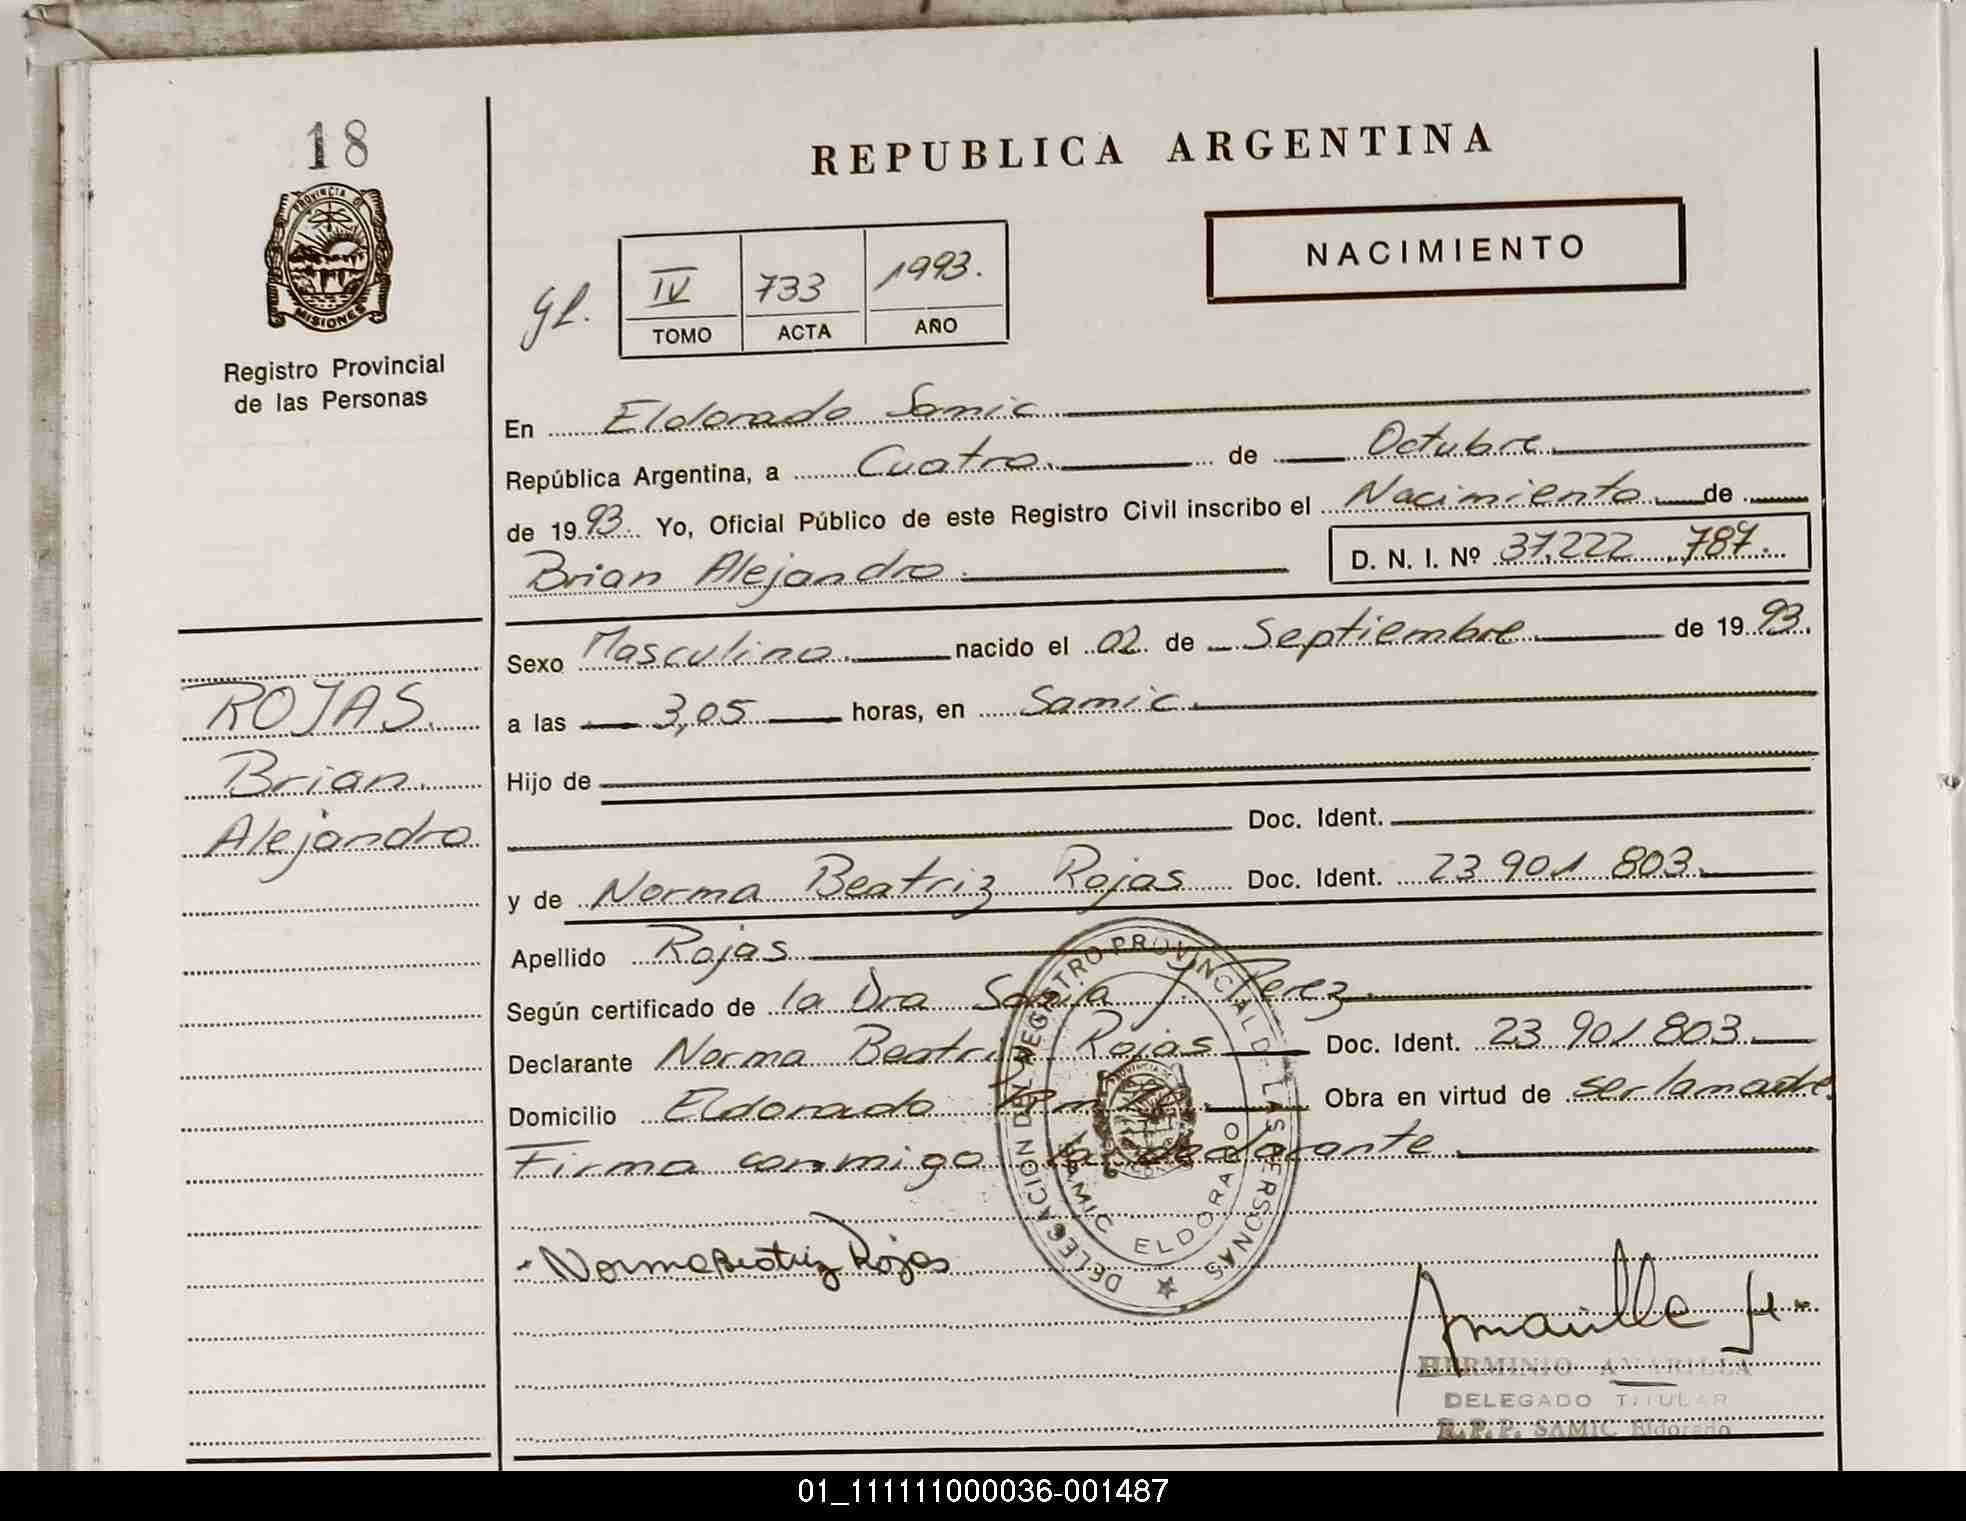 18
PROVINCIA DE
MISIONES
Registro Provincial
de las Personas
ROJAS.
Brian
Alejandro
REPUBLICA ARGENTINA
NACIMIENTO
IV 733 1993.
TOMO ACTA AÑO
En Eldorado Samic
República Argentina, a Cuatro. de Octubre
de 1993. Yo, Oficial Público de este Registro Civil inscribo el Nacimiento de
Brian Alejandro. D. N. I. Nº 37.222.787.
Sexo Masculino. nacido el 02 de Septiembre de 1993.
a las 3,05 horas, en Samic
Hijo de
Doc. Ident.
y de Norma Beatriz Rojas Doc. Ident. 23 901 803.
Apellido Rojas
Según certificado de la Dra Sonia J. Perez
Declarante Norma Beatriz Rojas Doc. Ident. 23 901 803.
Domicilio Eldorado Obra en virtud de ser la madre.
Firma conmigo la declarante
Norma Beatriz Rojas
DELEGACION DEL REGISTRO PROVINCIAL DE LAS PERSONAS
SAMIC ELDORADO
HERMINIO AMARILLA
DELEGADO TITULAR
R. P. P. SAMIC Eldorado
01_111111000036-001487